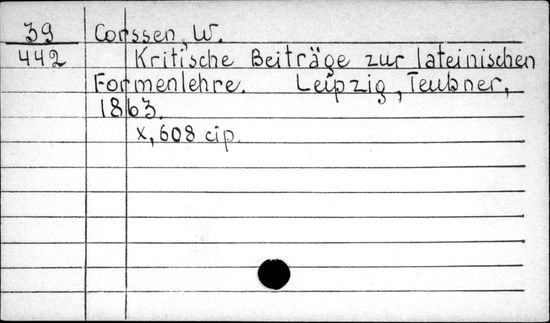 39 Corssen, W.
442 Kritische Beiträge zur lateinischen
Formenlehre. Leipzig, Teubner,
1863.
X, 608 стр.